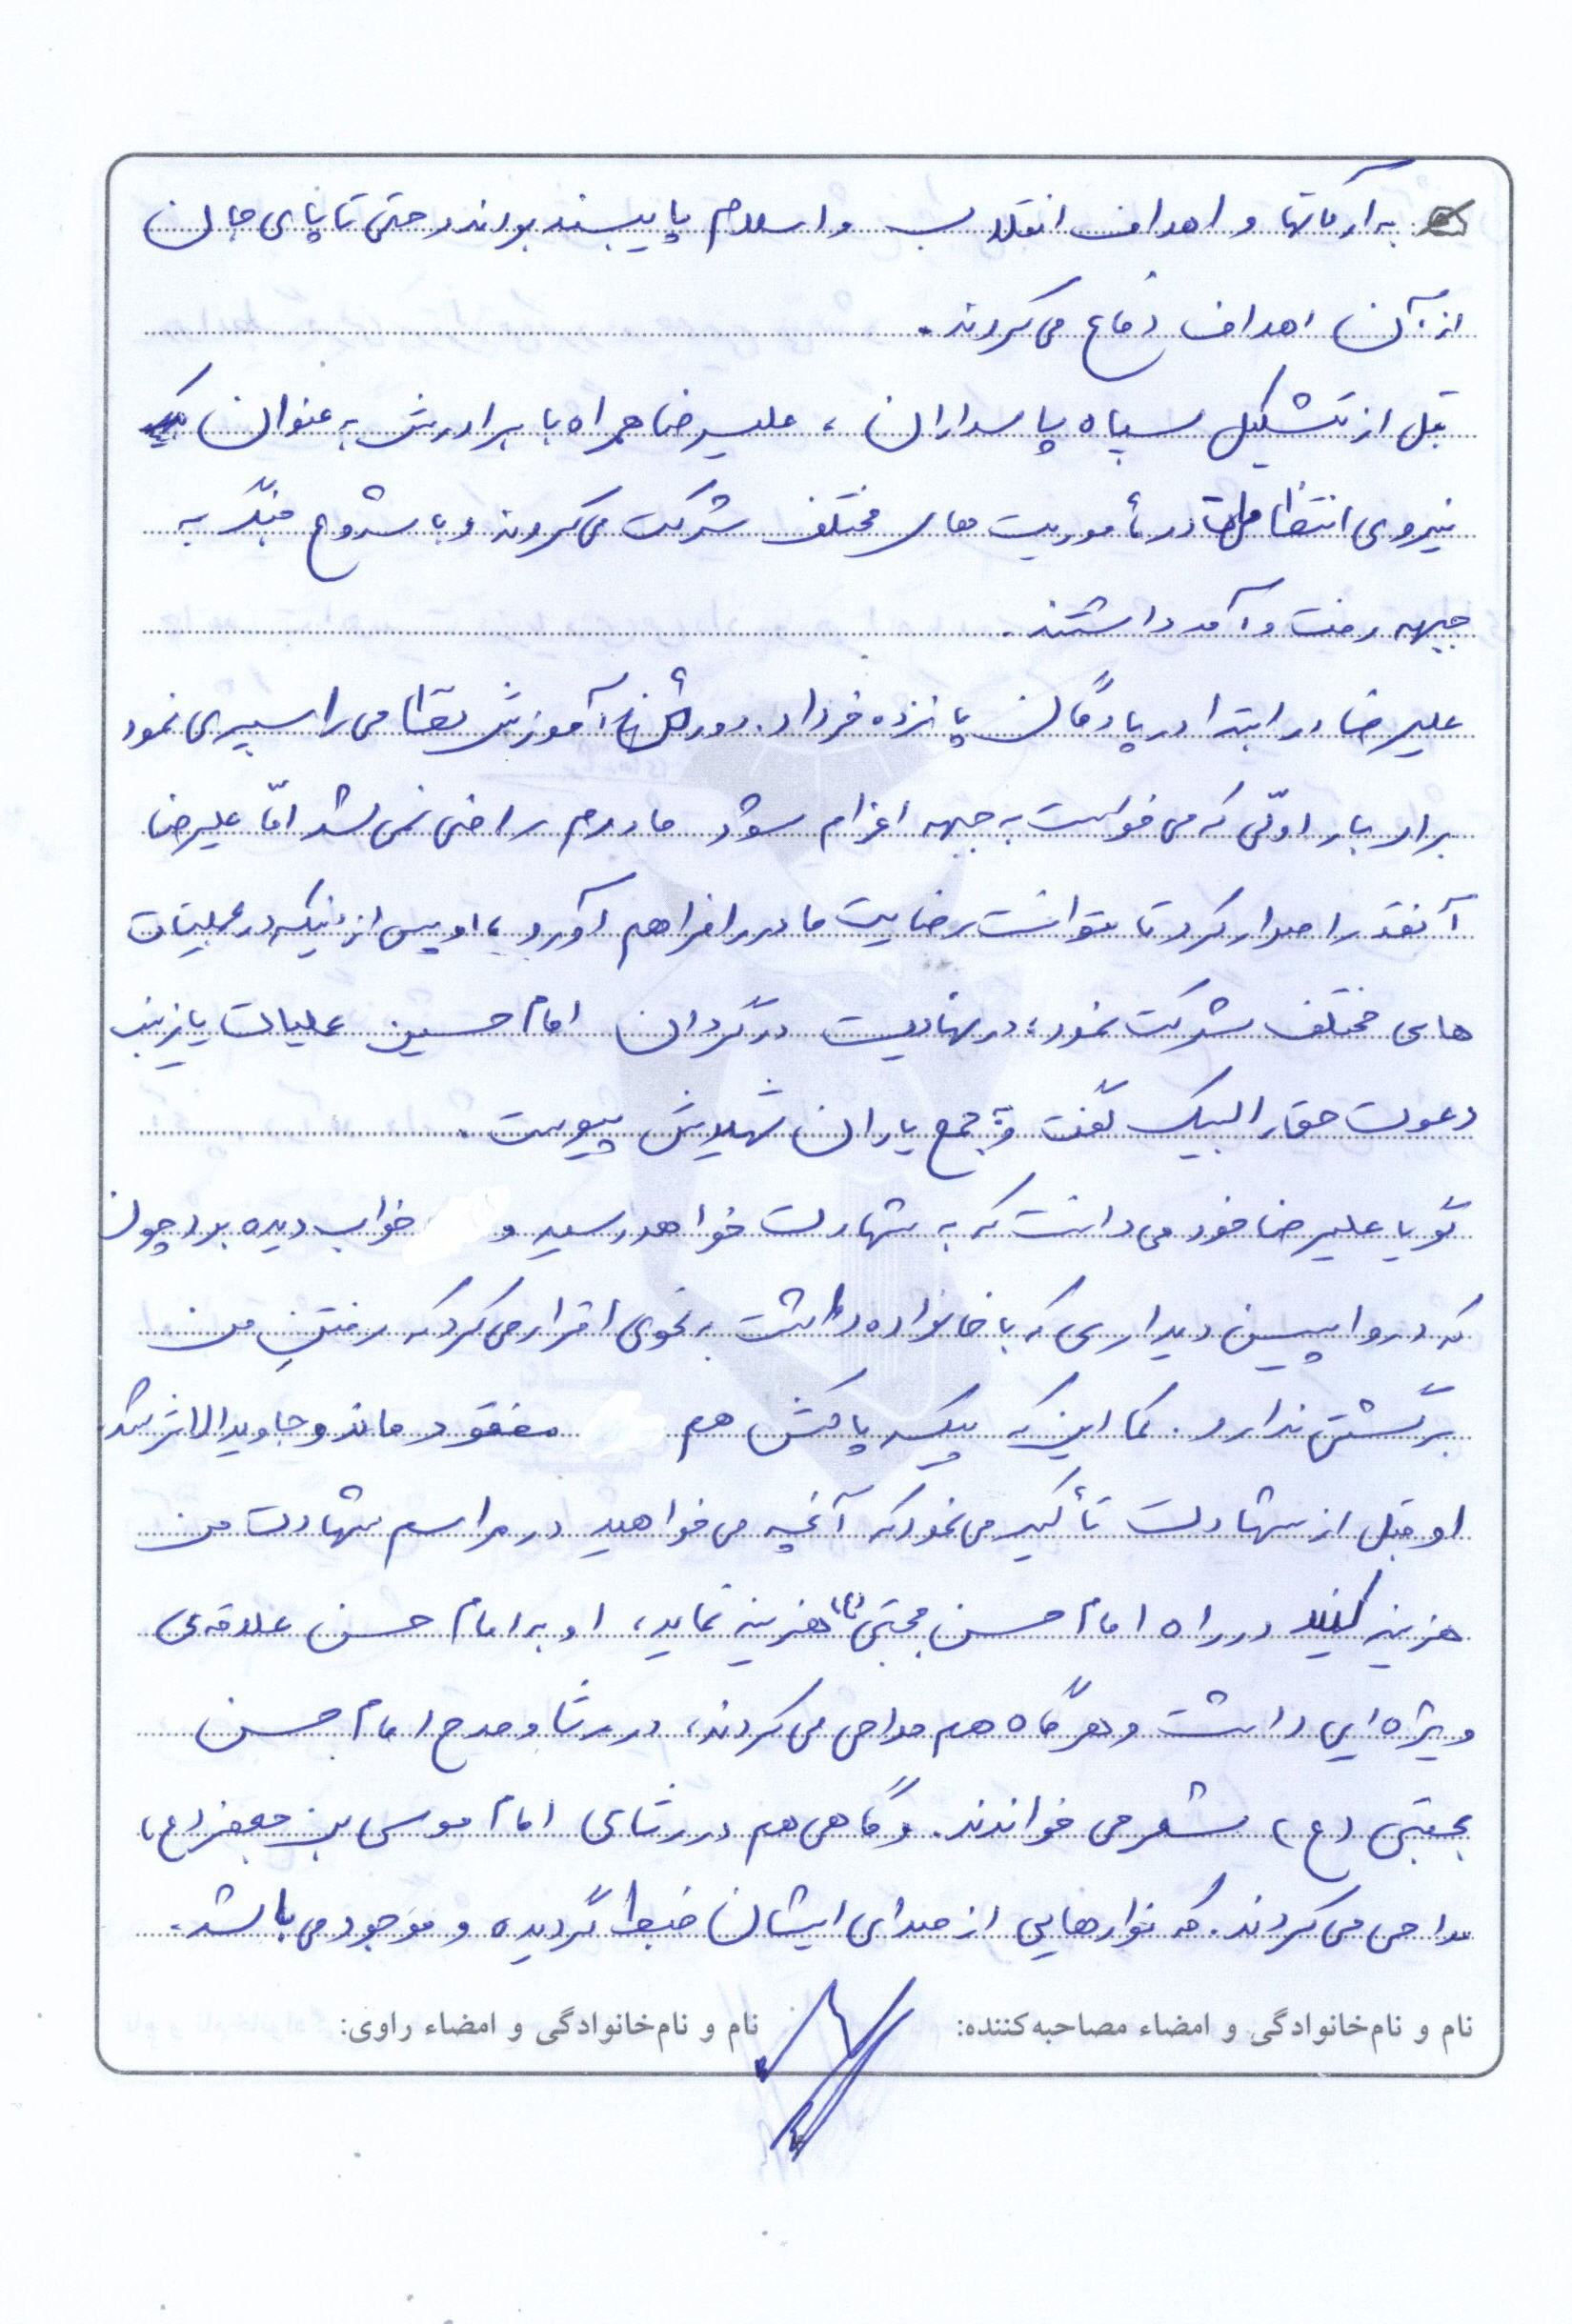 به آرمانها و اهداف انقلاب و اسلام پایبند بودند و حتی تا پای جان
از آن اهداف دفاع می‌کردند.
قبل از تشکیل سپاه پاسداران، علیرضا همراه با برادرش به عنوان
نیروی انتظامی در مأموریت های مختلف شرکت می‌کردند و با شروع جنگ به
جبهه رفت و آمد داشتند.
علیرضا در ابتدا در پادگان پانزده خرداد. دوره آموزش نظامی را سپری نمود
برای بار اولی که می خواست به جبهه اعزام شود مادرم راضی نمی شد امّا علیرضا
آنقدر اصرار کرد تا توانست رضایت مادر را فراهم آورد، او پس از اینکه در عملیات
های مختلف شرکت نمود، در نهایت در گردان امام حسین عملیات یا زینب
دعوت حق را لبیک گفت و به جمع یاران شهیدش پیوست.
گویا علیرضا خود می دانست که به شهادت خواهد رسید و خواب دیده بود چون
که در واپسین دیداری که با خانواده داشت به نحوی اقرار می کرد که رفتنِ من
برگشتی ندارد. کما این که پیکر پاکش هم مفقود ماند و جاوید الاثر شد.
او قبل از شهادت تأکید می نمود که آنچه می خواهید در مراسم شهادت من
هزینه کنید در راه امام حسن مجتبی (ع) هزینه نماید، او به امام حسن علاقه‌ی
ویژه ایی داشت و هرگاه هم مداحی می کردند، در رثا و مدح امام حسن
مجتبی (ع) شعر می خواندند. و گاهی هم در رثای امام موسی بن جعفر (ع)
مداحی می کردند. که نوارهایی از صدای ایشان ضبط گردیده و موجود می باشد.
نام و نام‌خانوادگی و امضاء مصاحبه‌کننده: نام و نام‌خانوادگی و امضاء راوی: